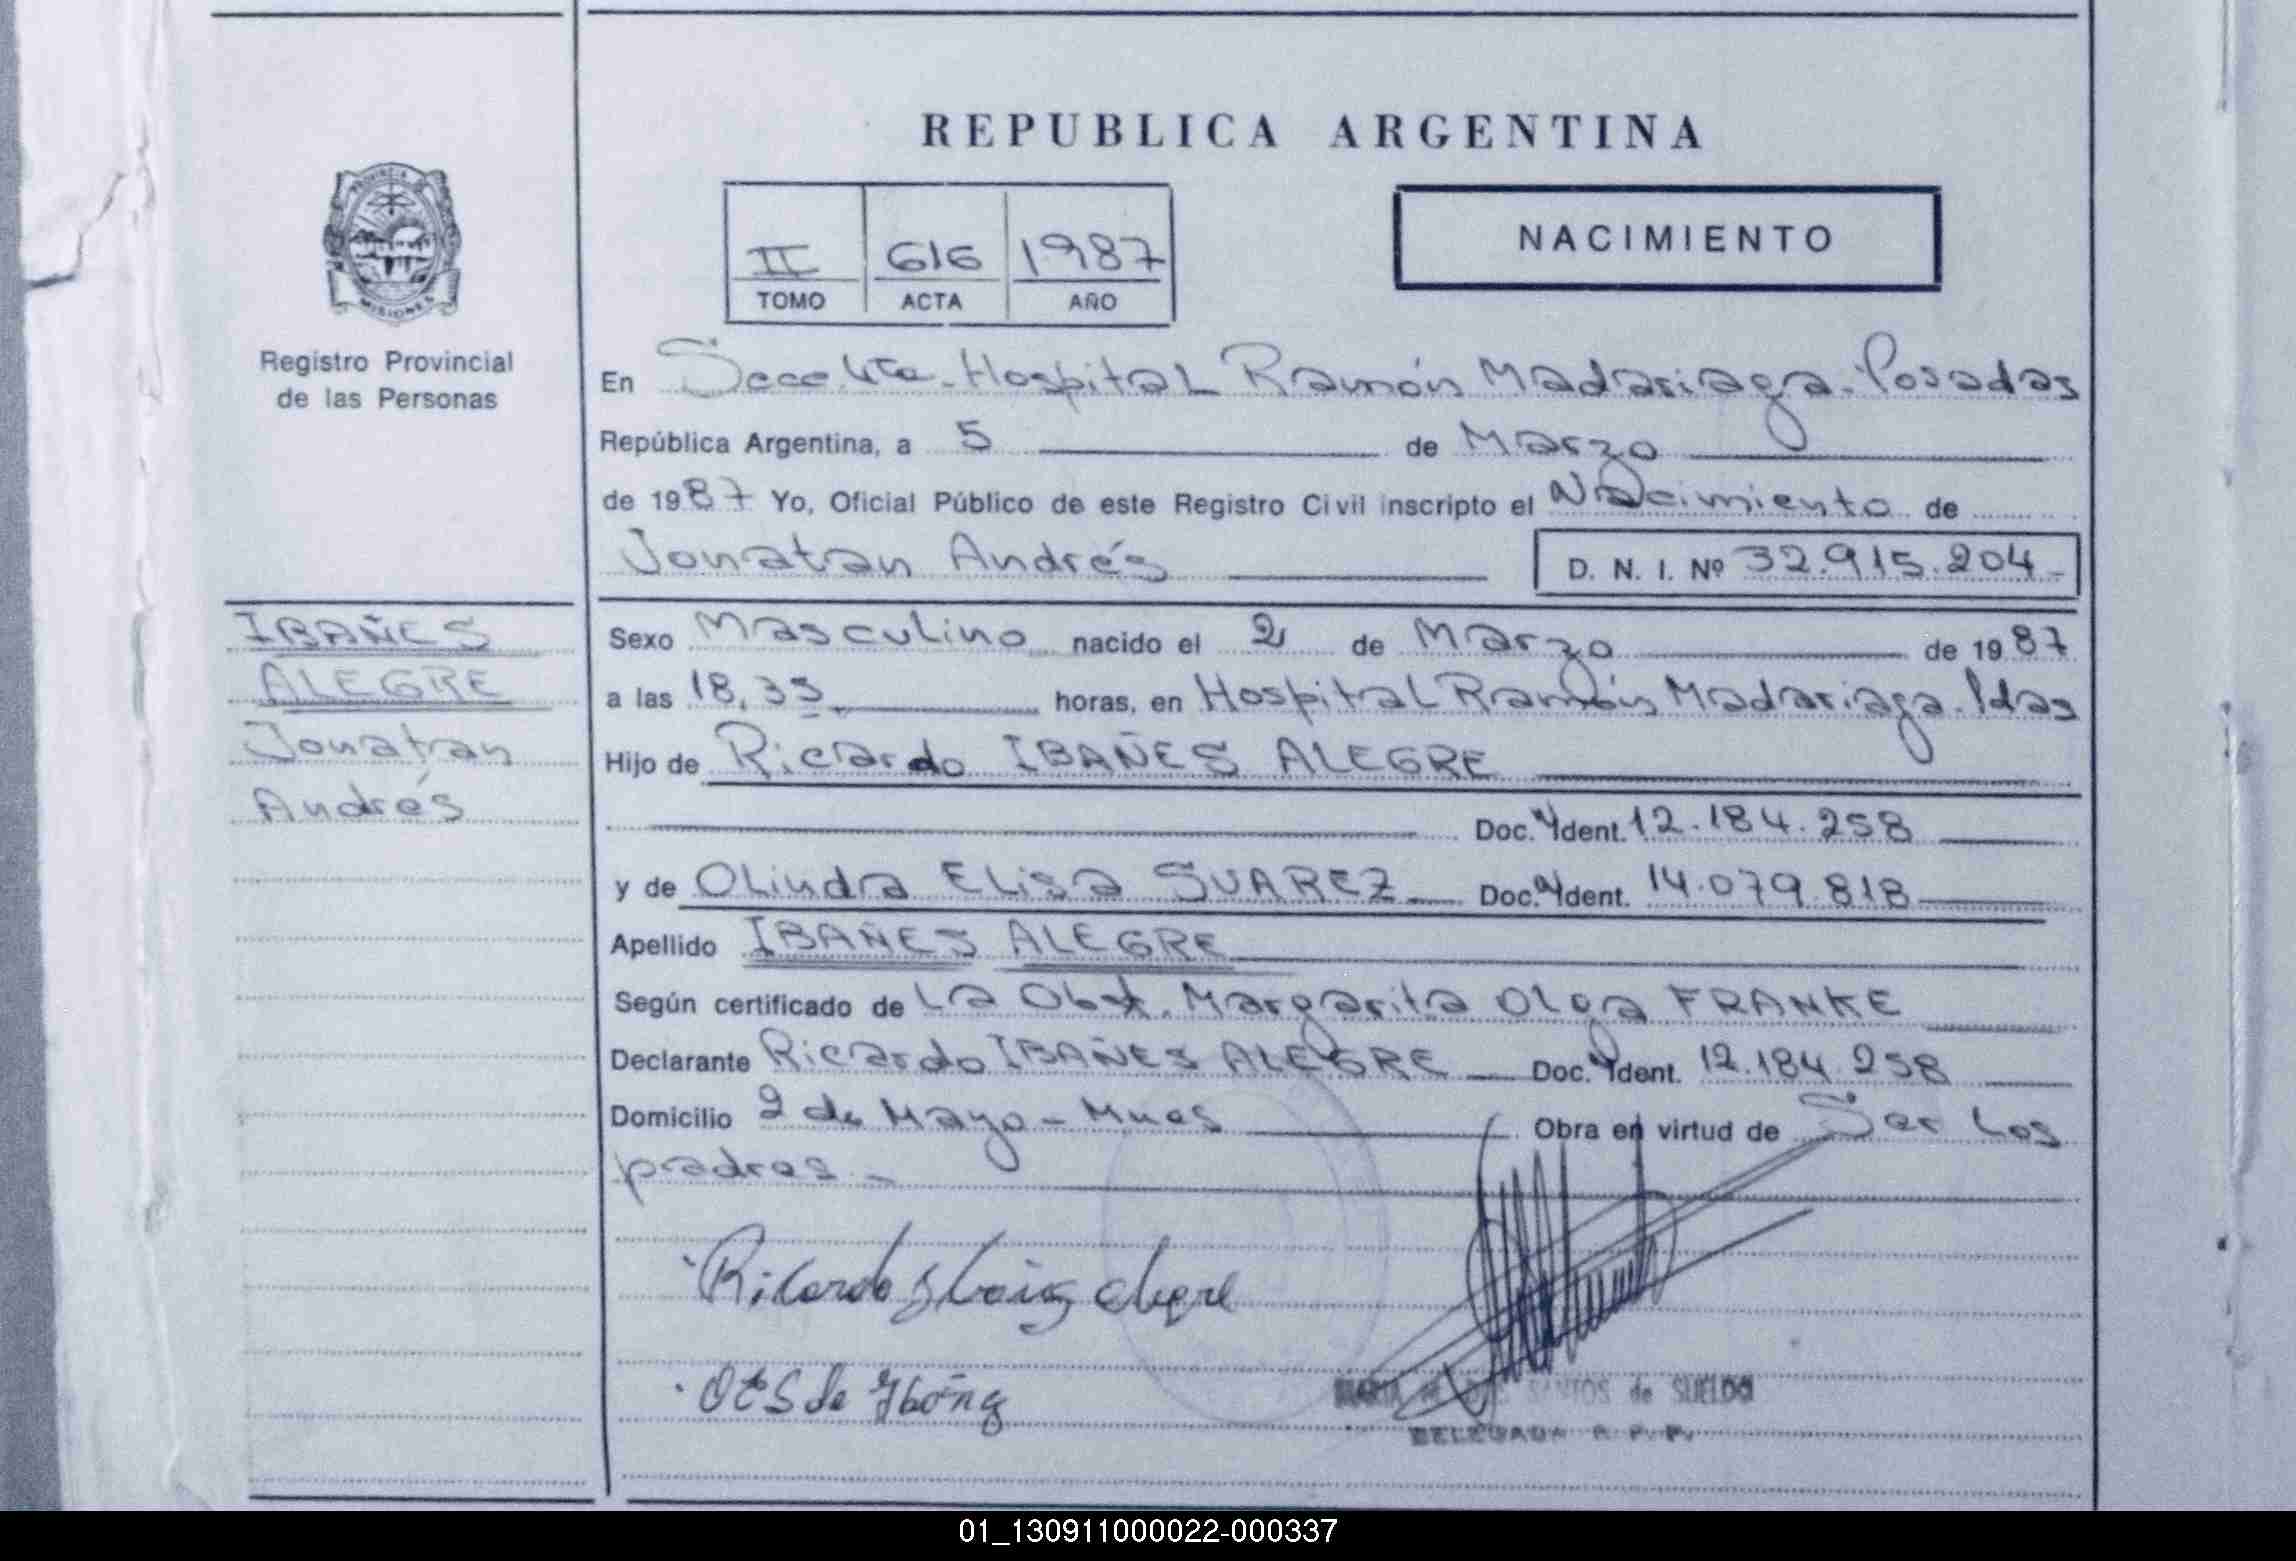 REPUBLICA ARGENTINA
PROVINCIA D MISIONES
Registro Provincial
de las Personas
II 616 1987
TOMO ACTA AÑO
NACIMIENTO
En Secc. 4ta - Hospital Ramón Madariaga - Posadas
República Argentina, a 5 de Marzo
de 1987 Yo, Oficial Público de este Registro Civil inscripto el Nacimiento de
Jonatan Andrés
D. N. I. Nº 32.915.204
IBAÑES
ALEGRE
Jonatan
Andrés
Sexo Masculino nacido el 2 de Marzo de 1987
a las 18,35 horas, en Hospital Ramón Madariaga - Pdas
Hijo de Ricardo IBAÑES ALEGRE
Doc. Ident. 12.184.258
y de Olinda Elisa SUAREZ Doc. Ident. 14.079.818
Apellido IBAÑES ALEGRE
Según certificado de La Obst. Margarita Olga FRANKE
Declarante Ricardo IBAÑES ALEGRE Doc. Ident. 12.184.258
Domicilio 2 de Mayo - Mnes Obra en virtud de Ser los
padres -
Ricardo alegre
OES de
SANTOS de SUELDO
DELEGADA R. P. P.
01_130911000022-000337